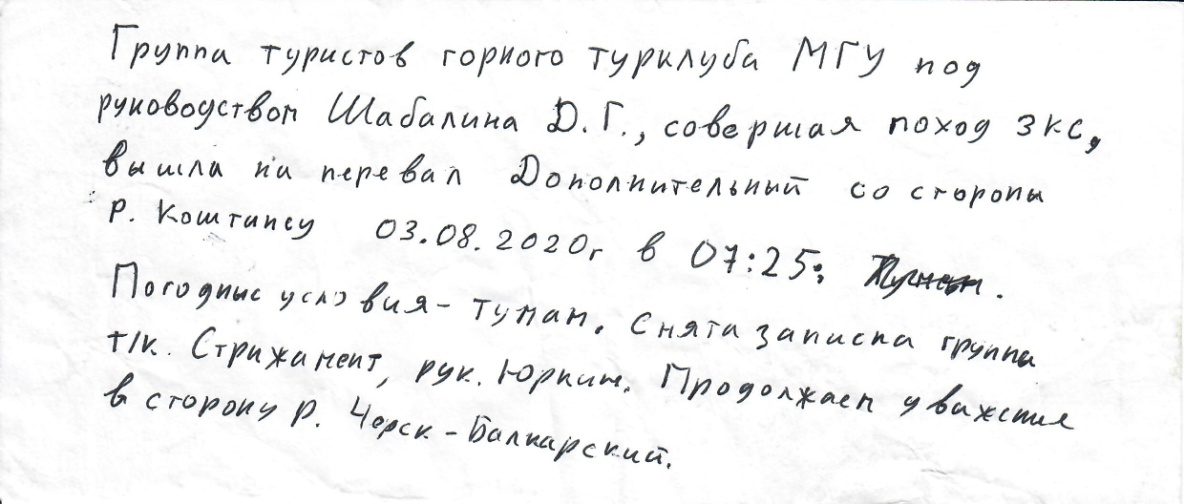 Группа туристов горного турклуба МГУ под
руководством Шабалина Д.Г., совершая поход 3 КС,
вышла на перевал Дополнительный со стороны
р. Коштансу 03.08.2020г в 07:25.
Погодные условия - туман. Снята записка группы
т/к. Стрижамент, рук. Юркин. Продолжаем движение
в сторону р. Черек-Балкарский.